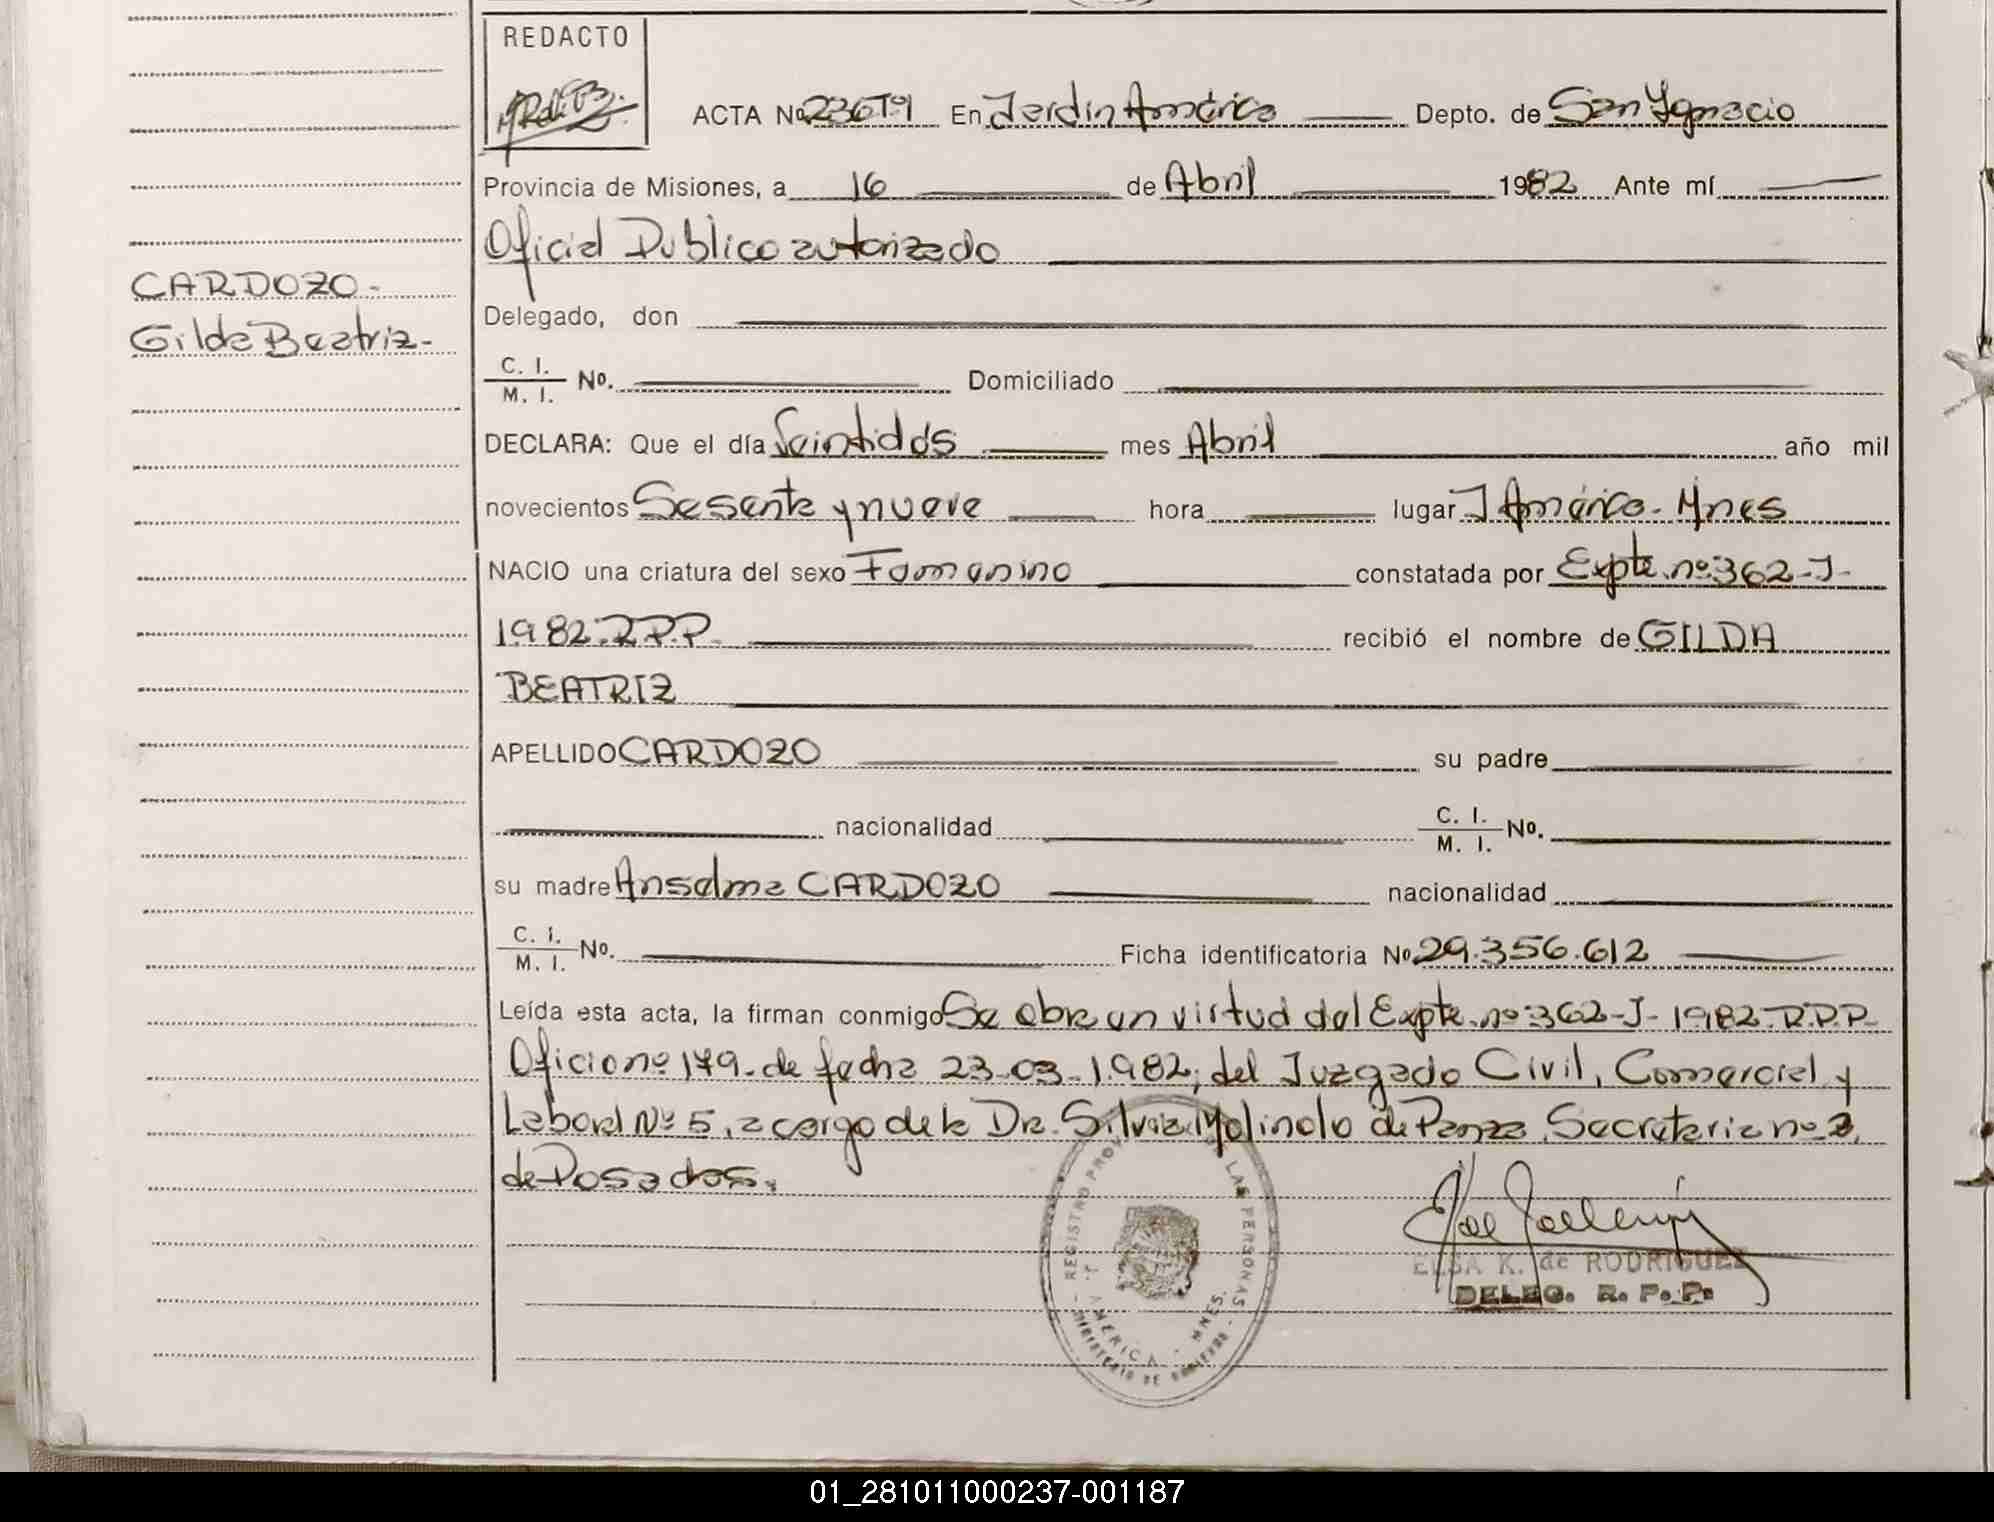 REDACTO
ACTA No 236T9 En Jardin América Depto. de San Ygnacio
Provincia de Misiones, a 16 de Abril 1982 Ante mí
Oficial Publico autorizado
CARDOZO-
Gilda Beatriz-
Delegado, don
C. I.
M. I. No. Domiciliado
DECLARA: Que el día Veintidós mes Abril año mil
novecientos Sesenta y nueve hora lugar J América. Mnes
NACIO una criatura del sexo Femenino constatada por Expte. nº 362-J-
1982-R.P.P. recibió el nombre de GILDA
BEATRIZ
APELLIDO CARDOZO su padre
nacionalidad C. I. M. I. No.
su madre Anselma CARDOZO nacionalidad
C. I.
M. I. No. Ficha identificatoria No 29.356.612
Leída esta acta, la firman conmigo Se abre en virtud del Expte. nº 362-J- 1982-R.P.P.-
Oficio nº 179- de fecha 23-03-1.982, del Juzgado Civil, Comercial y
Laboral Nº 5, a cargo de la Dra. Silvia de Panza, Secretaria nº 2,
de Posadas.
REGISTRO LAS PERSONAS - J. AMERICA - MNES.
MINISTERIO DE GOBIERNO
ELSA K. de RODRIGUEZ
DELEG. R. P. P.
01_281011000237-001187